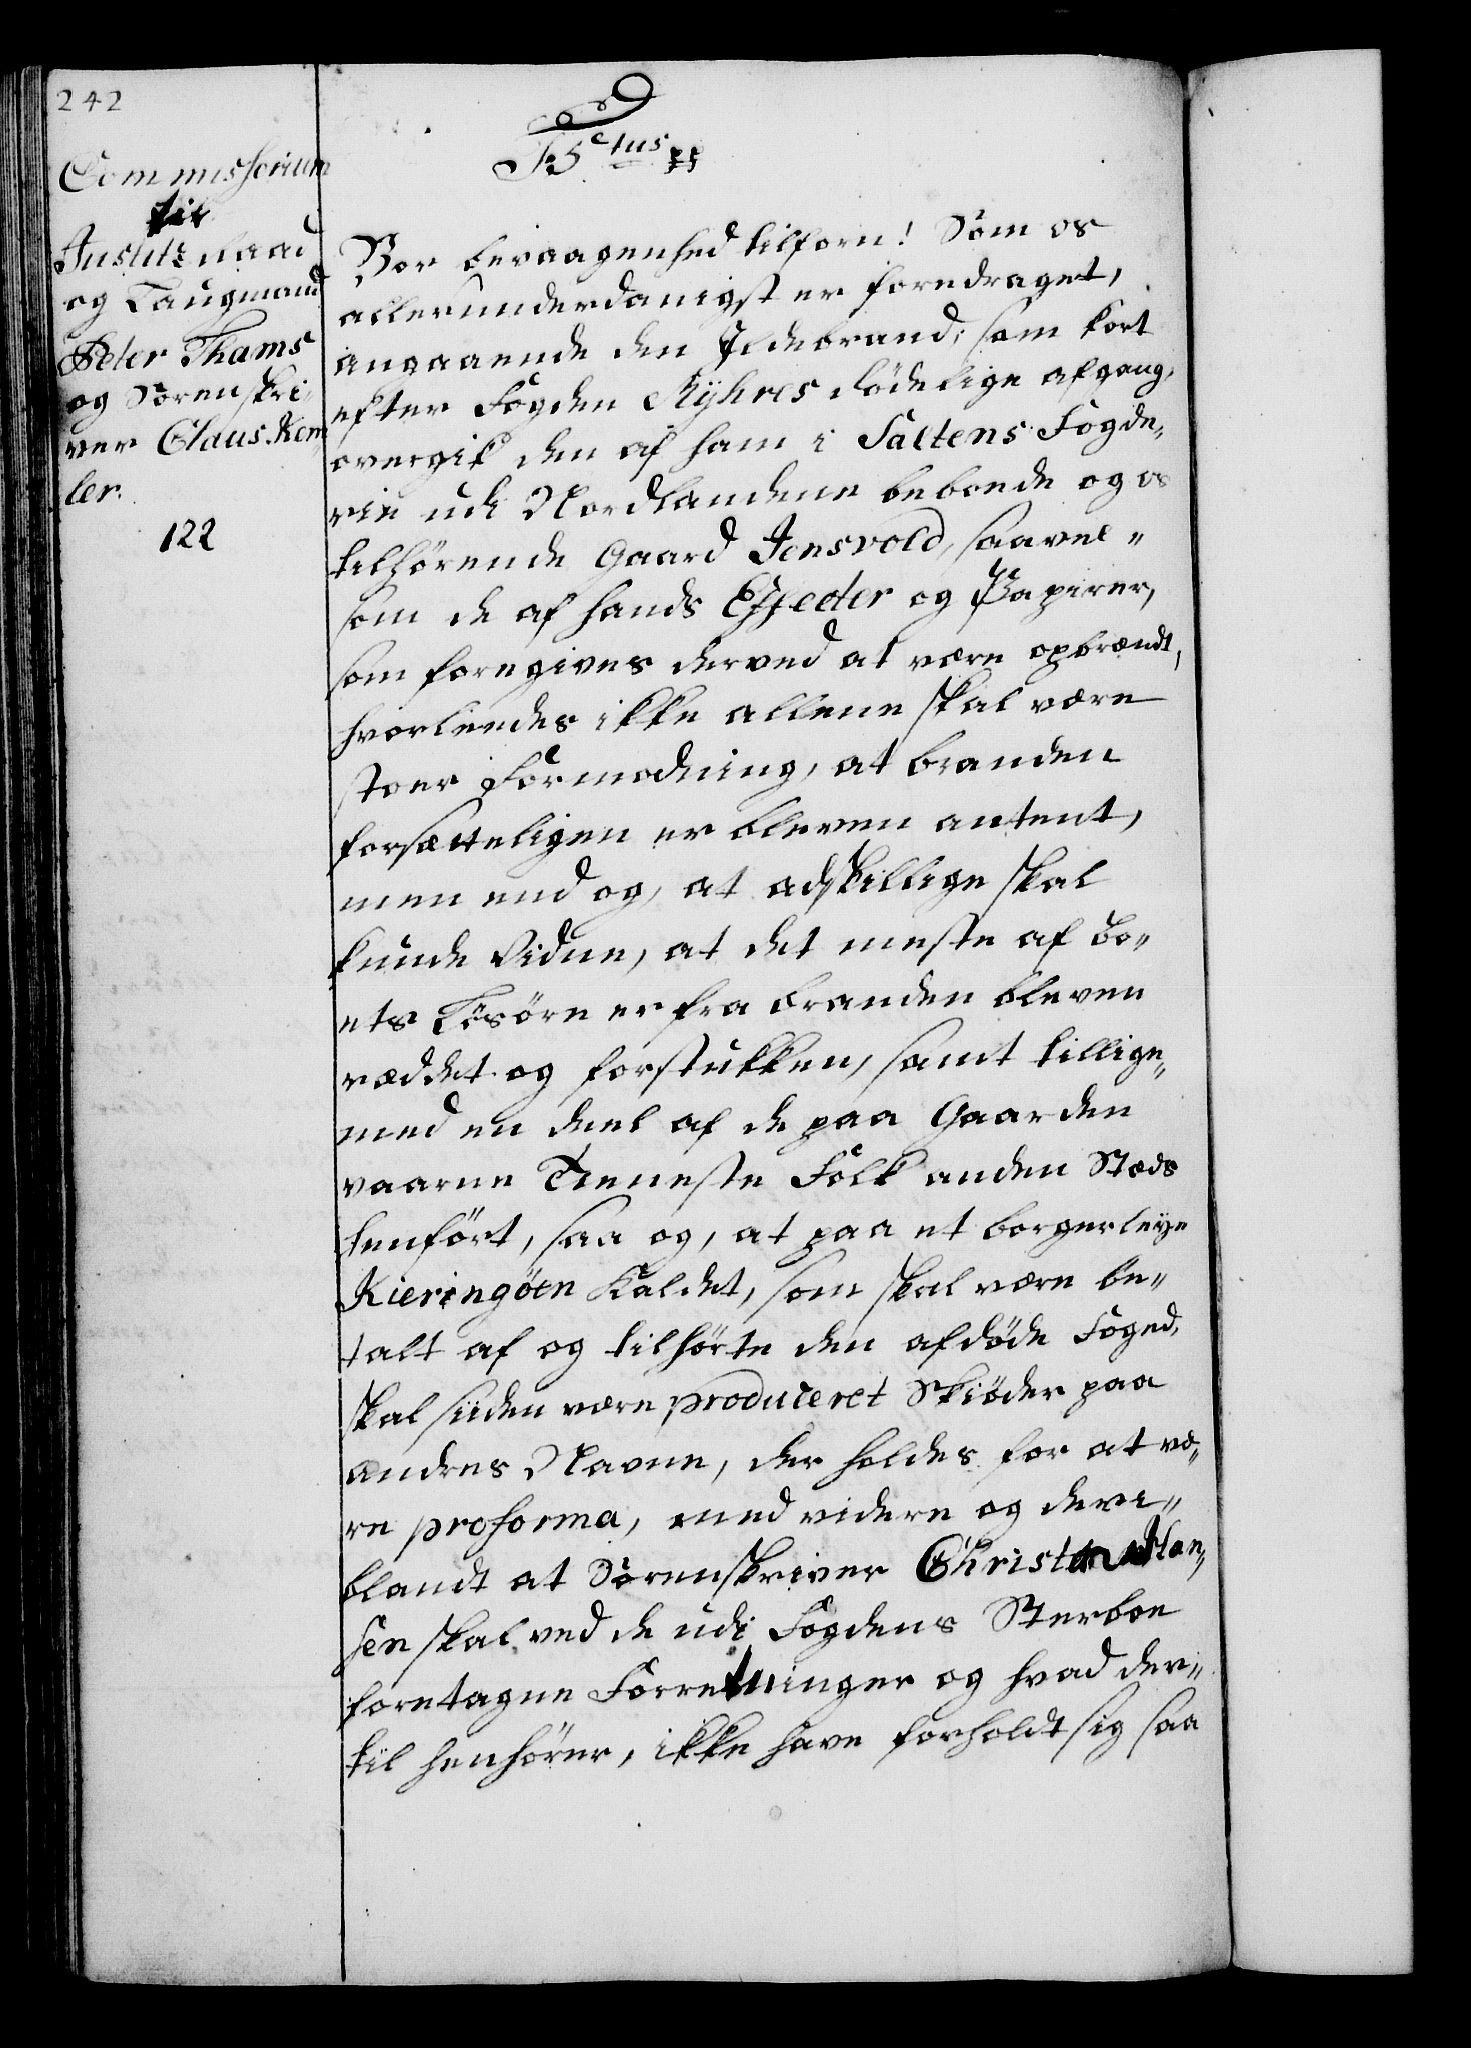 242
Commissorium
til
Justitz Raad
og Laugmand
Peter Thams
og Sorenskri„
ver Claus Kem„
ler.
122
F: 5tus pp
Vor bevaagenhed tilforn! Som os
allerunderdanigst er foredraget,
angaaende den Ildebrand, som kort
efter Fogden Ryhres dödelige afgang,
overgik den af ham i Saltens Fogde„
rie udi Nordlandene beboede og os
tilhörende Gaard Jensvold, saavel„
som de af hands Effecter og Papirer,
som foregives derved at være opbrændt,
hvorleedes ikke allene skal være
stoer Formodning, at branden
forsætteligen er bleven antent,
men end og, at adskillige skal
kunde Vidne, at det meste af bo„
ets Lösöre er fra branden bleven
ræddet og forstukken, samt tillige„
med en deel af de paa Gaarden
vaarne Tieneste Folk anden Stæds
henfört, saa og, at paa et borgerleye
Kieringöen Kaldet, som skal være be„
talt af og tilhörte den afdöde Foged,
skal siiden være produceret Skiöder paa
andres Navne, der holdes for at væ„
re proforma, med videre og deri„
blandt at Sorenskriver Christen Han„
sen skal ved de udi Fogdens Sterboe
foretagne Forretninger og hvad der„
til henhörer, ikke have forholdt sig saa